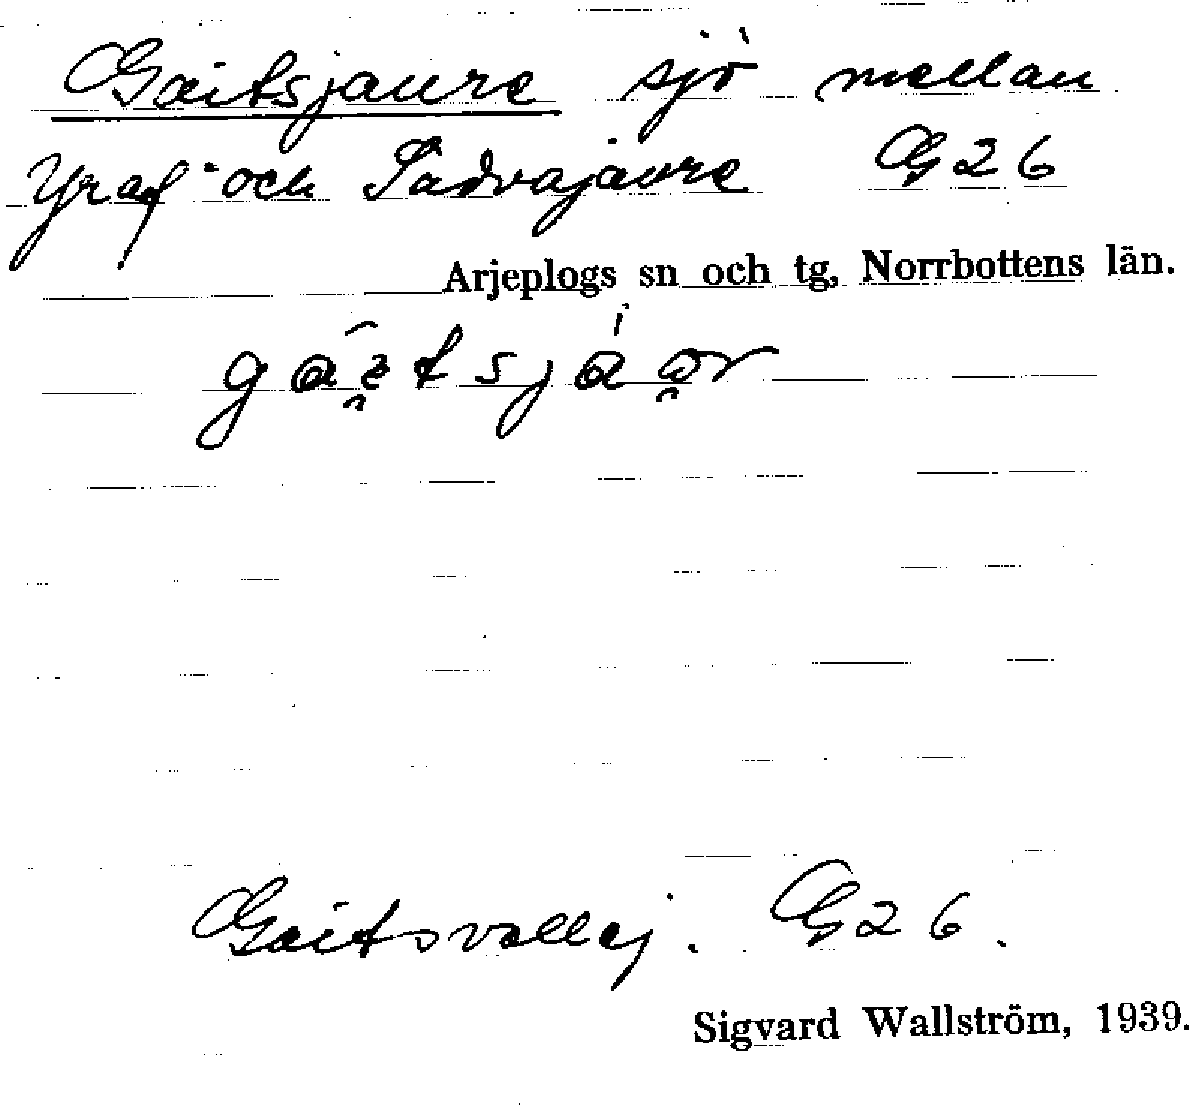 Gaitsjaure sjö mellan
Yraf och Sadvajaure G 26
Arjeplogs sn och tg, Norrbottens län.
Gaitsvallej. G 26.
Sigvard Wallström, 1939.